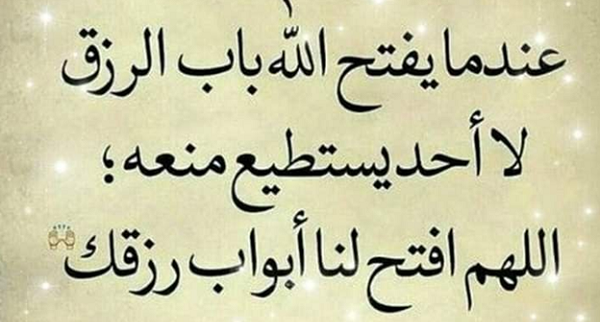 عندما يفتح الله باب الرزق
لا أحد يستطيع منعه؛
اللهم افتح لنا أبواب رزقك 🙌